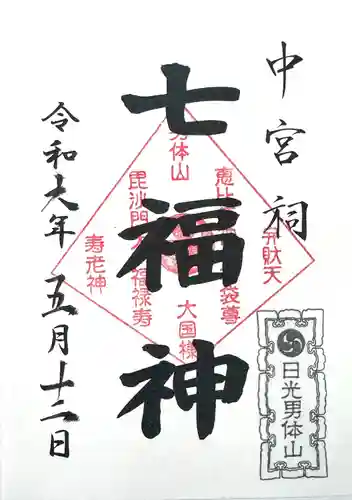 中宮祠
七福神
令和六年五月十二日
男体山
恵比
弁財天
毘沙門
布袋尊
福禄寿
大国様
寿老神
日光男体山